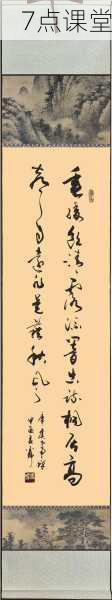 7点课堂
垂緌饮清露流響出疏桐居高
声自遠非是藉秋风